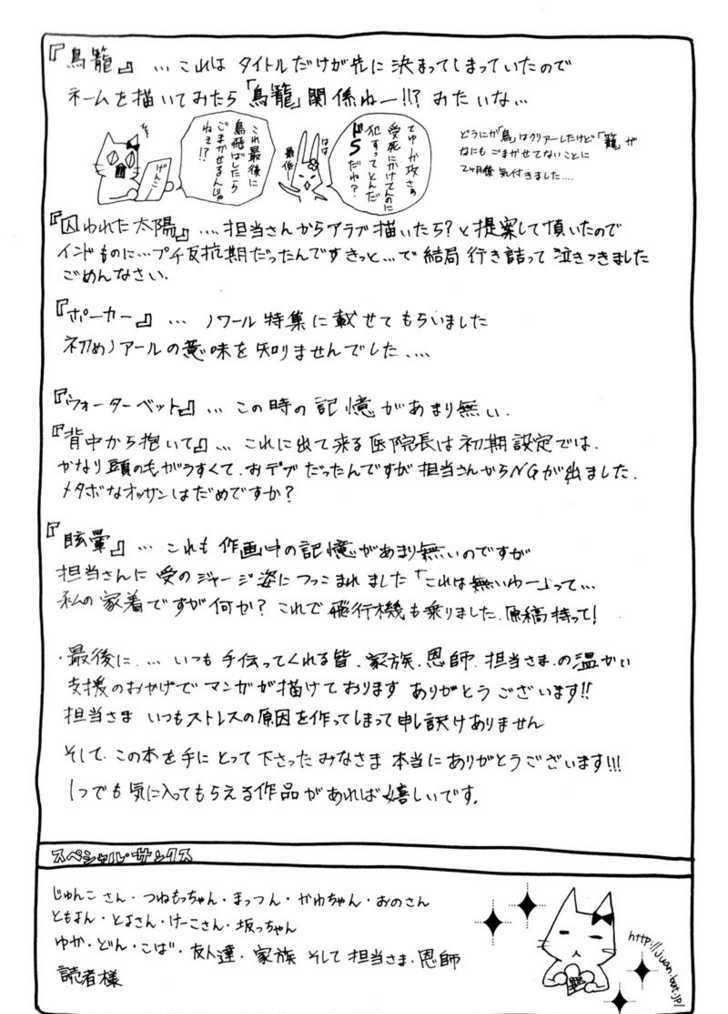 『鳥籠』… これは タイトルだけが先に 決まってしまっていたので
ネームを描いてみたら「鳥籠」関係ねー!!? みたいな…
げんこ
これ最後に
鳥飛ばしたら
ごまかせるんじゃ
ねぇ!?
はは
最低
てゆーか攻さの
受死にかけてんのに
犯すってとんだ
ドSだね?
どうにか「鳥」はクリアーしたけど「籠」が
なにも ごまかせてないことに
2ヶ月後 気付きました….
『囚われた太陽』…. 担当さんからアラブ描いたら?と提案して頂いたので
インドものに…プチ反抗期だったんですきっと…で 結局 行き詰って 泣きつきました
ごめんなさい.
『ポーカー』… ノワール特集に載せてもらいました
初めノアールの意味を知りませんでした….
『ウォーターベット』… この時の記憶があまり無い.
『背中から抱いて』… これに出て来る医院長は初期設定では.
かなり頭の毛がうすくて.おデブだったんですが担当さんからNGが出ました.
メタボなオッサンはだめですか?
『眩暈』… これも 作画中の記憶があまり無いのですが
担当さんに 受のジャージ姿につっこまれました「これは無いわー」って…
私の家着ですが何か? これで飛行機も乗りました.原稿持って!
・最後に…. いつも 手伝ってくれる皆.家族.恩師.担当さま.の温かい
支援のおかげで マンガが描けております ありがとうございます!!
担当さま いつもストレスの原因を作ってしまって申し訳けありません
そして.この本を手にとって下さったみなさま 本当にありがとうございます!!!
1つでも気に入ってもらえる作品があれば嬉しいです.
スペシャルサンクス
じゅんこさん・つねもっちゃん・まっつん・かわちゃん・おのさん
ともよん・とよさん・けーこさん・坂っちゃん
ゆか・どん・こば・友人達・家族 そして 担当さま・恩師
読者様